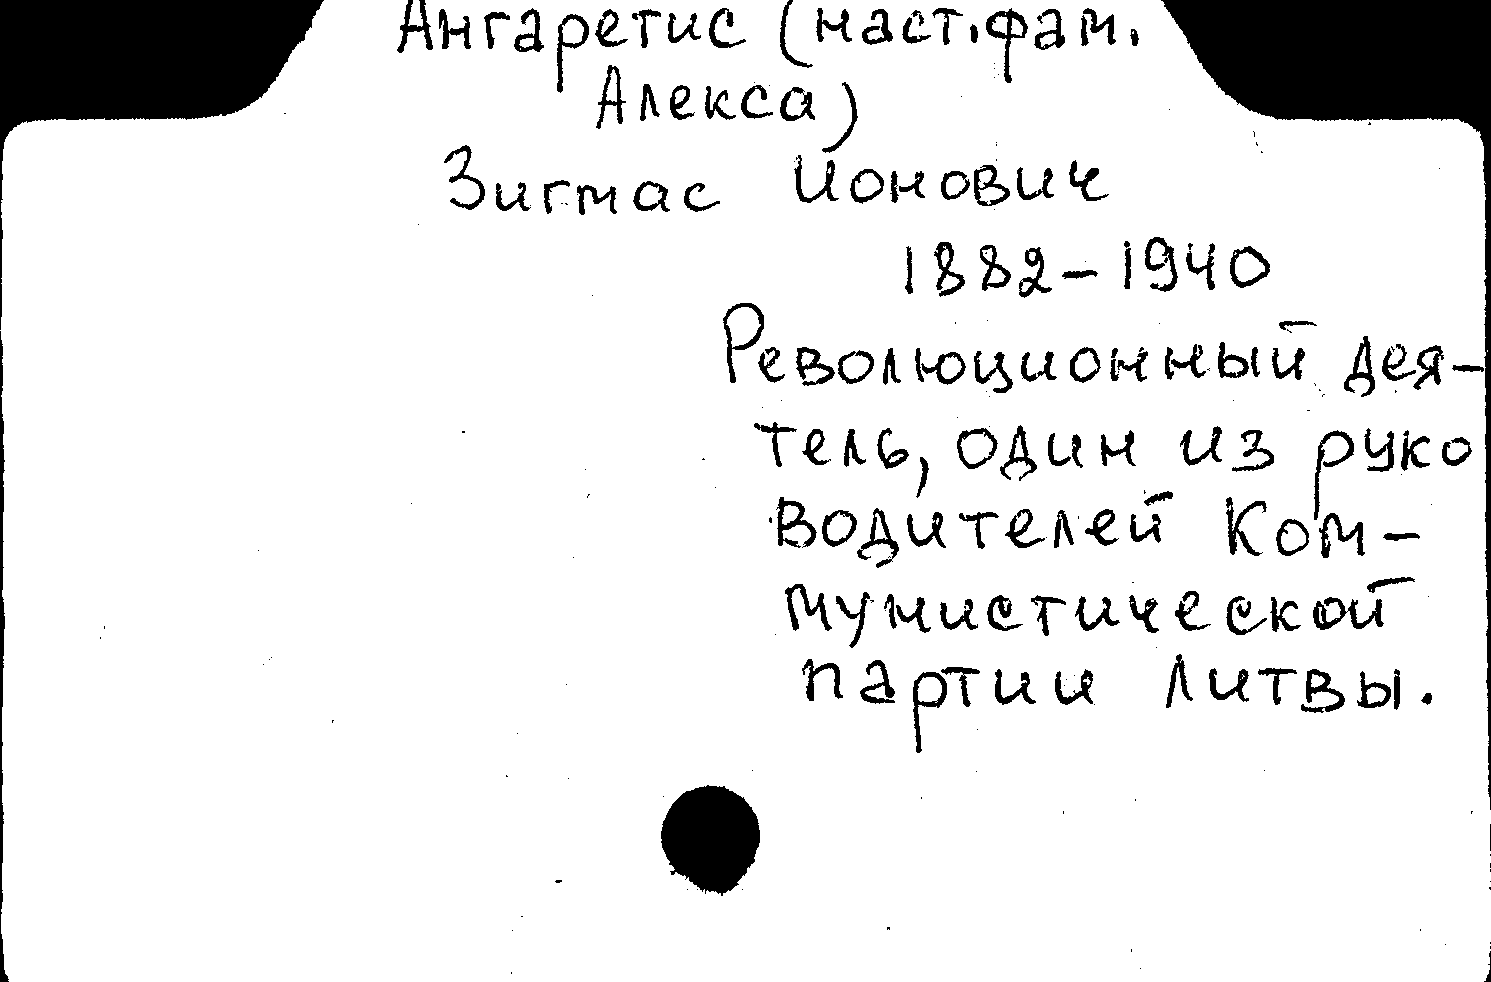 Ангаретис (наст.фам.
Алекса)
Зигмас Ионович
1882-1940
Революционный дея-
тель, один из руко
водителей Ком-
мунистической
партии Литвы.